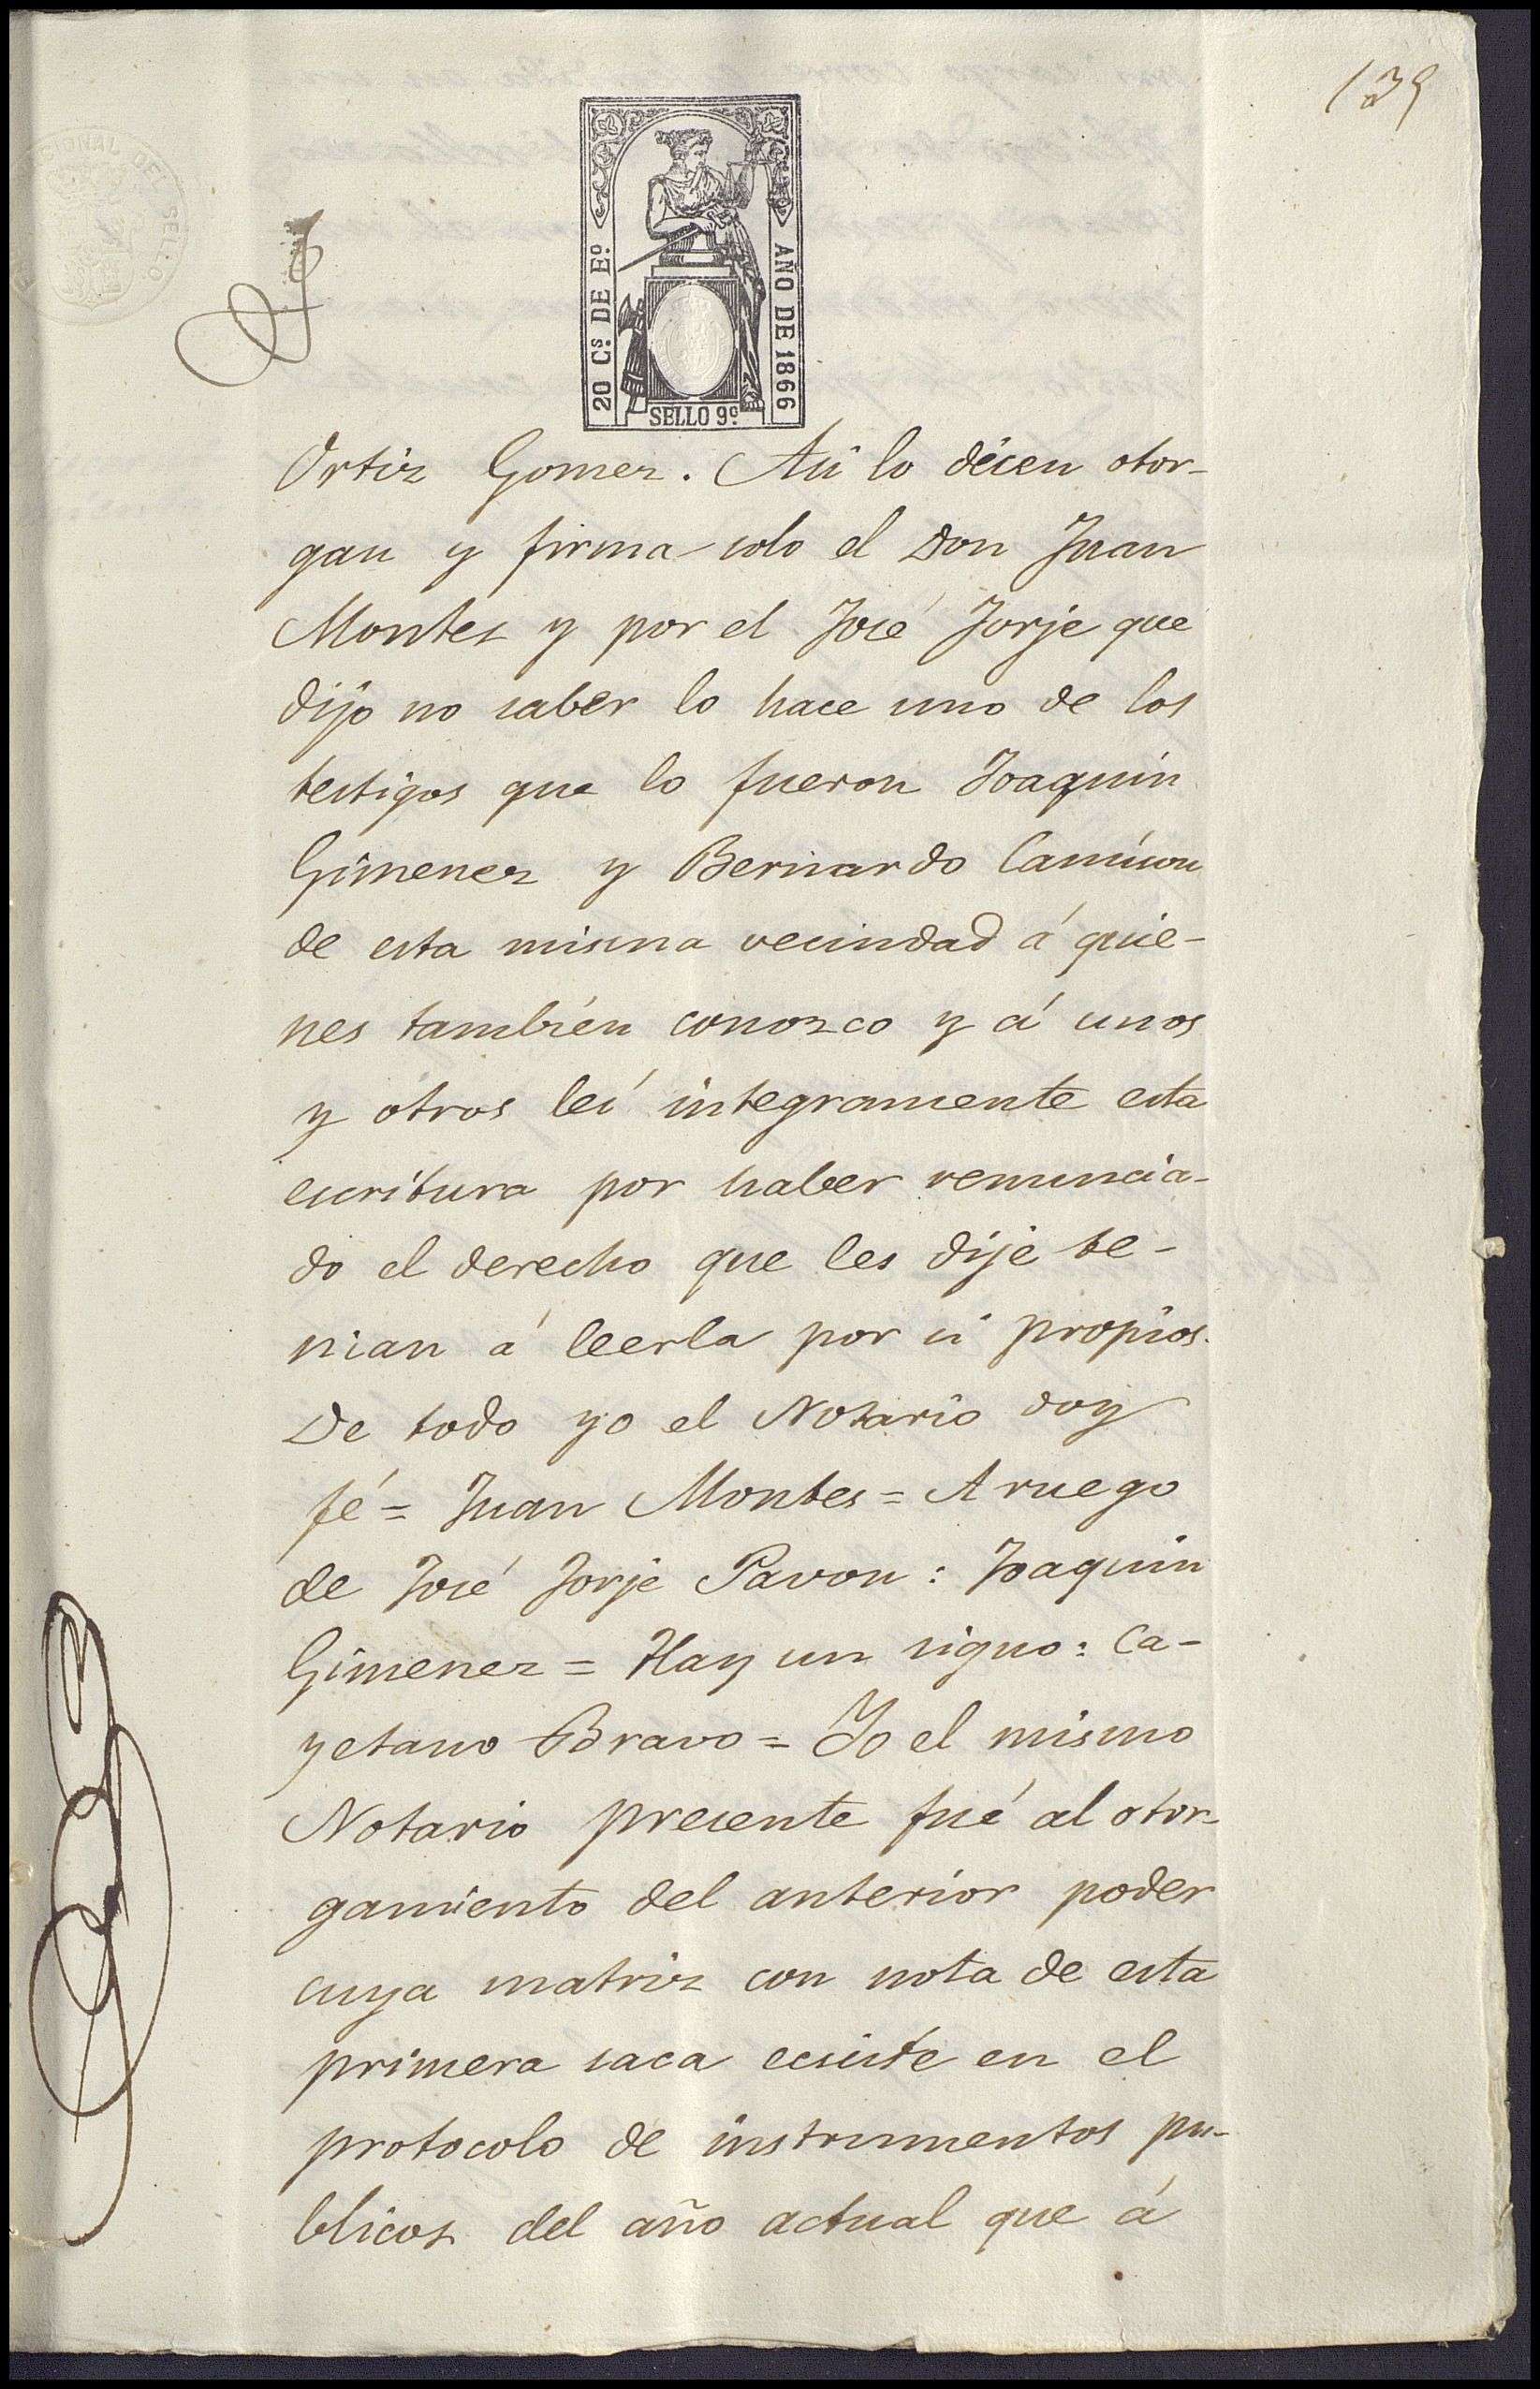 139
20 Cs. DE Eo.
AÑO DE 1866
SELLO 9o.
Ortiz Gomez. Asi lo dicen otor-
gan y firma solo el Don Juan
Montes y por el José Jorje que
dijo no saber lo hace uno de los
testigos que lo fueron Joaquin
Gimenez y Bernardo
de esta misma vecindad á quie-
nes también conozco y á unos
y otros leí integramente esta
escritura por haber renuncia-
do el derecho que les dije te-
nian á leerla por si propios.
De todo yo el Notario doy
fé = Juan Montes = A ruego
de José Jorje Pavon: Joaquin
Gimenez = Hay un signo: Ca-
yetano Bravo = Yo el mismo
Notario presente fué al otor-
gamiento del anterior poder
cuya matriz con nota de esta
primera saca ecsiste en el
protocolo de instrumentos pu-
blicos del año actual que á